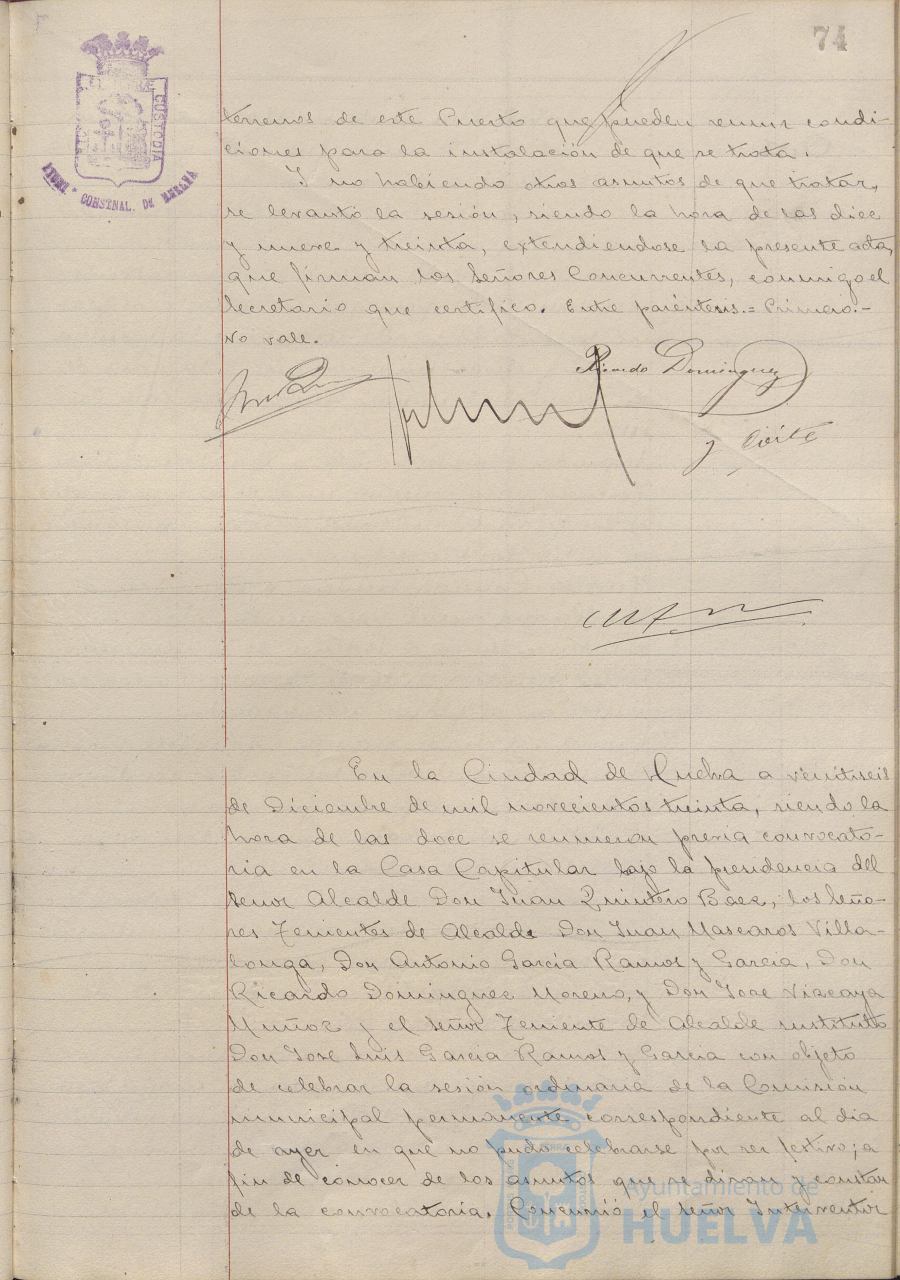 74
CUSTODIA
CONSTNAL. DE HUELVA
terrenos de este Puerto que pueden reunir condi-
ciones para la instalación de que se trata.
Y no habiendo otros asuntos de que tratar,
se levantó la sesión, siendo la hora de las diez
y nueve y treinta, extendiendose la presente acta,
que firman los Señores Concurrentes, conmigo el
Secretario que certifico. Entre paréntesis.=Primero.-
No vale.
Ricardo Dominguez
En la Ciudad de Huelva a veintiseis
de Diciembre de mil novecientos treinta, siendo la
hora de las doce se reunieron previa convocato-
ria en la Casa Capitular bajo la presidencia del
Señor Alcalde Don Juan Quintero Baez, los Seño-
res Tenientes de Alcalde Don Juan Mascaros Villa-
longa, Don Antonio García Ramos y Garcia, Don
Ricardo Dominguez Moreno, y Don Jose Vizcaya
Muñoz y el Señor Teniente de Alcalde sustituto
Don Jose Luis Garcia Ramos y Garcia con objeto
de celebrar la sesión ordinaria de la Comisión
municipal permanente correspondiente al dia
de ayer en que no pudo celebrarse por ser festivo, a
fin de conocer de los asuntos que se dirán y constan
de la convocatoria. Concurrió el Señor Interventor
Ayuntamiento de
HUELVA